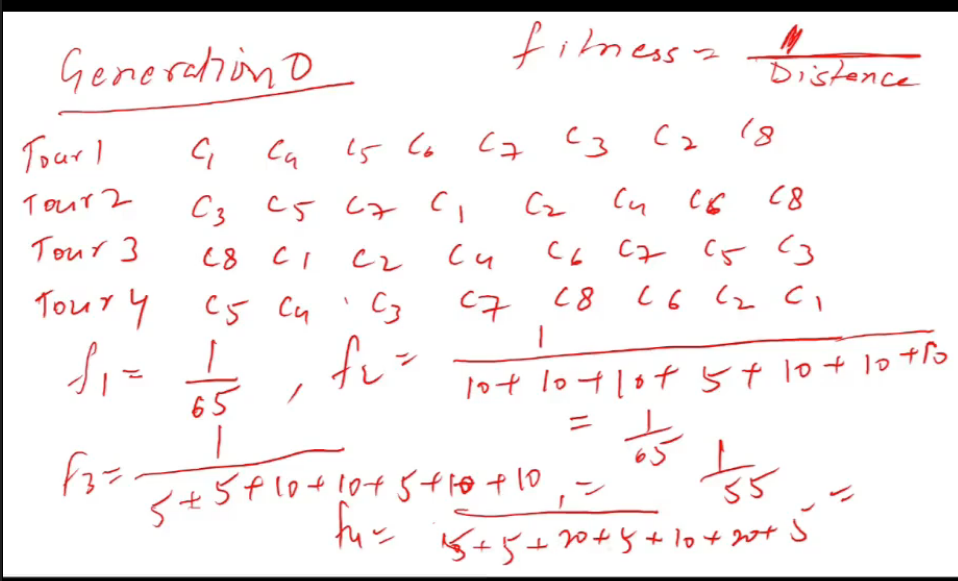 Generation 0
fitness = 1 / Distence
Tour 1 C1 C4 C5 C6 C7 C3 C2 C8
Tour 2 C3 C5 C7 C1 C2 C4 C6 C8
Tour 3 C8 C1 C2 C4 C6 C7 C5 C3
Tour 4 C5 C4 C3 C7 C8 C6 C2 C1
f1 = 1/65 , f2 = 1 / 10+10+10+5+10+10+10
= 1/65
f3 = 1 / 5+5+10+10+5+10+10 = 1/55
f4 = 1 / 5+5+20+5+10+20+5 =